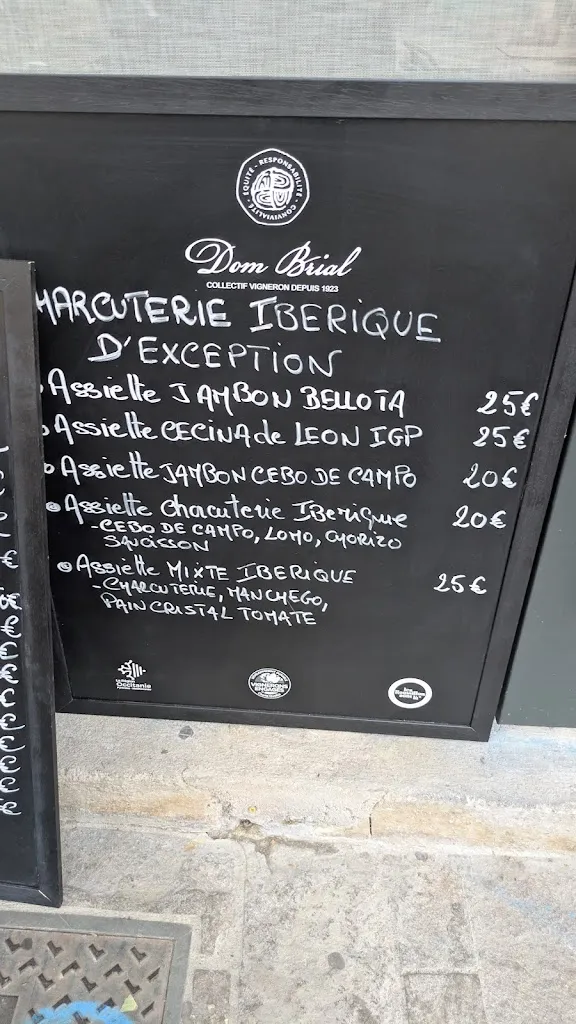 ÉQUITÉ - RESPONSABILITÉ - CONVIVIALITÉ
Dom Brial
COLLECTIF VIGNERON DEPUIS 1923
HARCUTERIE IBERIQUE
D'EXCEPTION
Assiette JAMBON BELLOTA 25€
Assiette CECINA de LEON IGP 25€
Assiette JAMBON CEBO DE CAMPO 20€
Assiette Charcuterie IBerique 20€
-CEBO DE CAMPO, LOMO, CHORIZO
SAUCISSON
Assiette MIXTE IBERIQUE 25€
-CHARCUTERIE, MANCHEGO,
PAIN CRISTAL TOMATE
Occitanie
VIGNERONS
ENGAGÉS
€
€
€
€
€
€
€
€
€
€